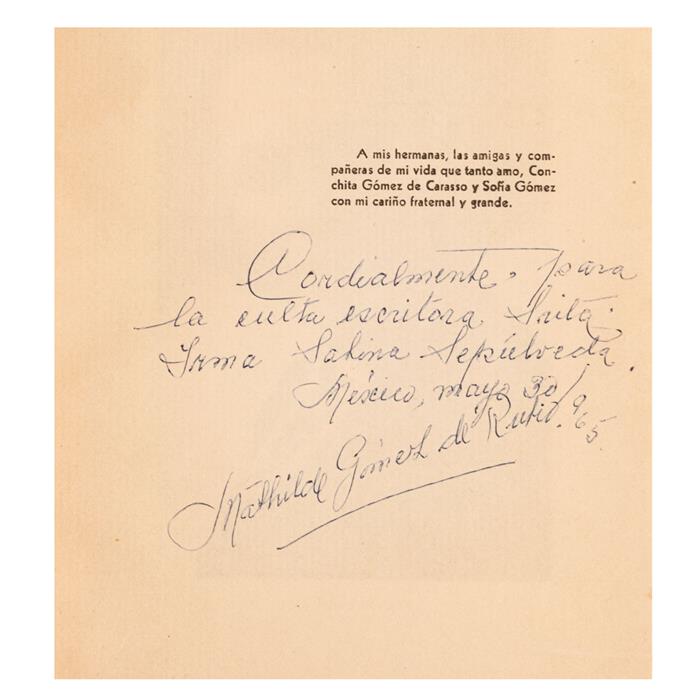 A mis hermanas, las amigas y com-
pañeras de mi vida que tanto amo, Con-
chita Gómez de Carasso y Sofía Gómez
con mi cariño fraternal y grande.
Cordialmente, para
la culta escritora Srita.
Irma Sabina Sepúlveda.
México, mayo 30/965.
Mathilde Gómez de Rubio